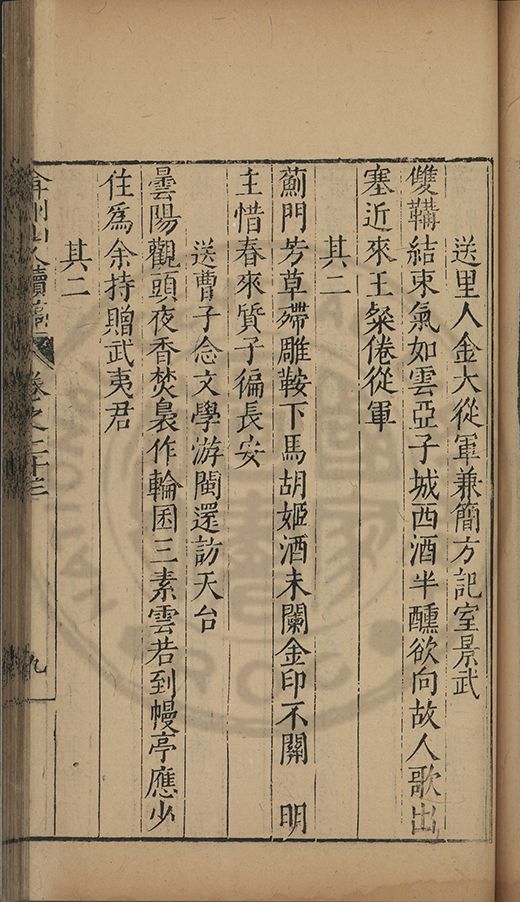 送里人金大從軍兼簡方記室景武
雙鞲結束氣如雲亞子城西酒半醺欲向故人歌出
塞近來王粲倦從軍
其二
薊門芳草殢雕鞍下馬胡姬酒未闌金印不關 明
主惜春來質子徧長安
送曹子念文學游閩還訪天台
曇陽觀頭夜香焚裊作輪囷三素雲若到幔亭應少
住爲余持贈武夷君
其二
弇州山人續藁 卷之二十三 九